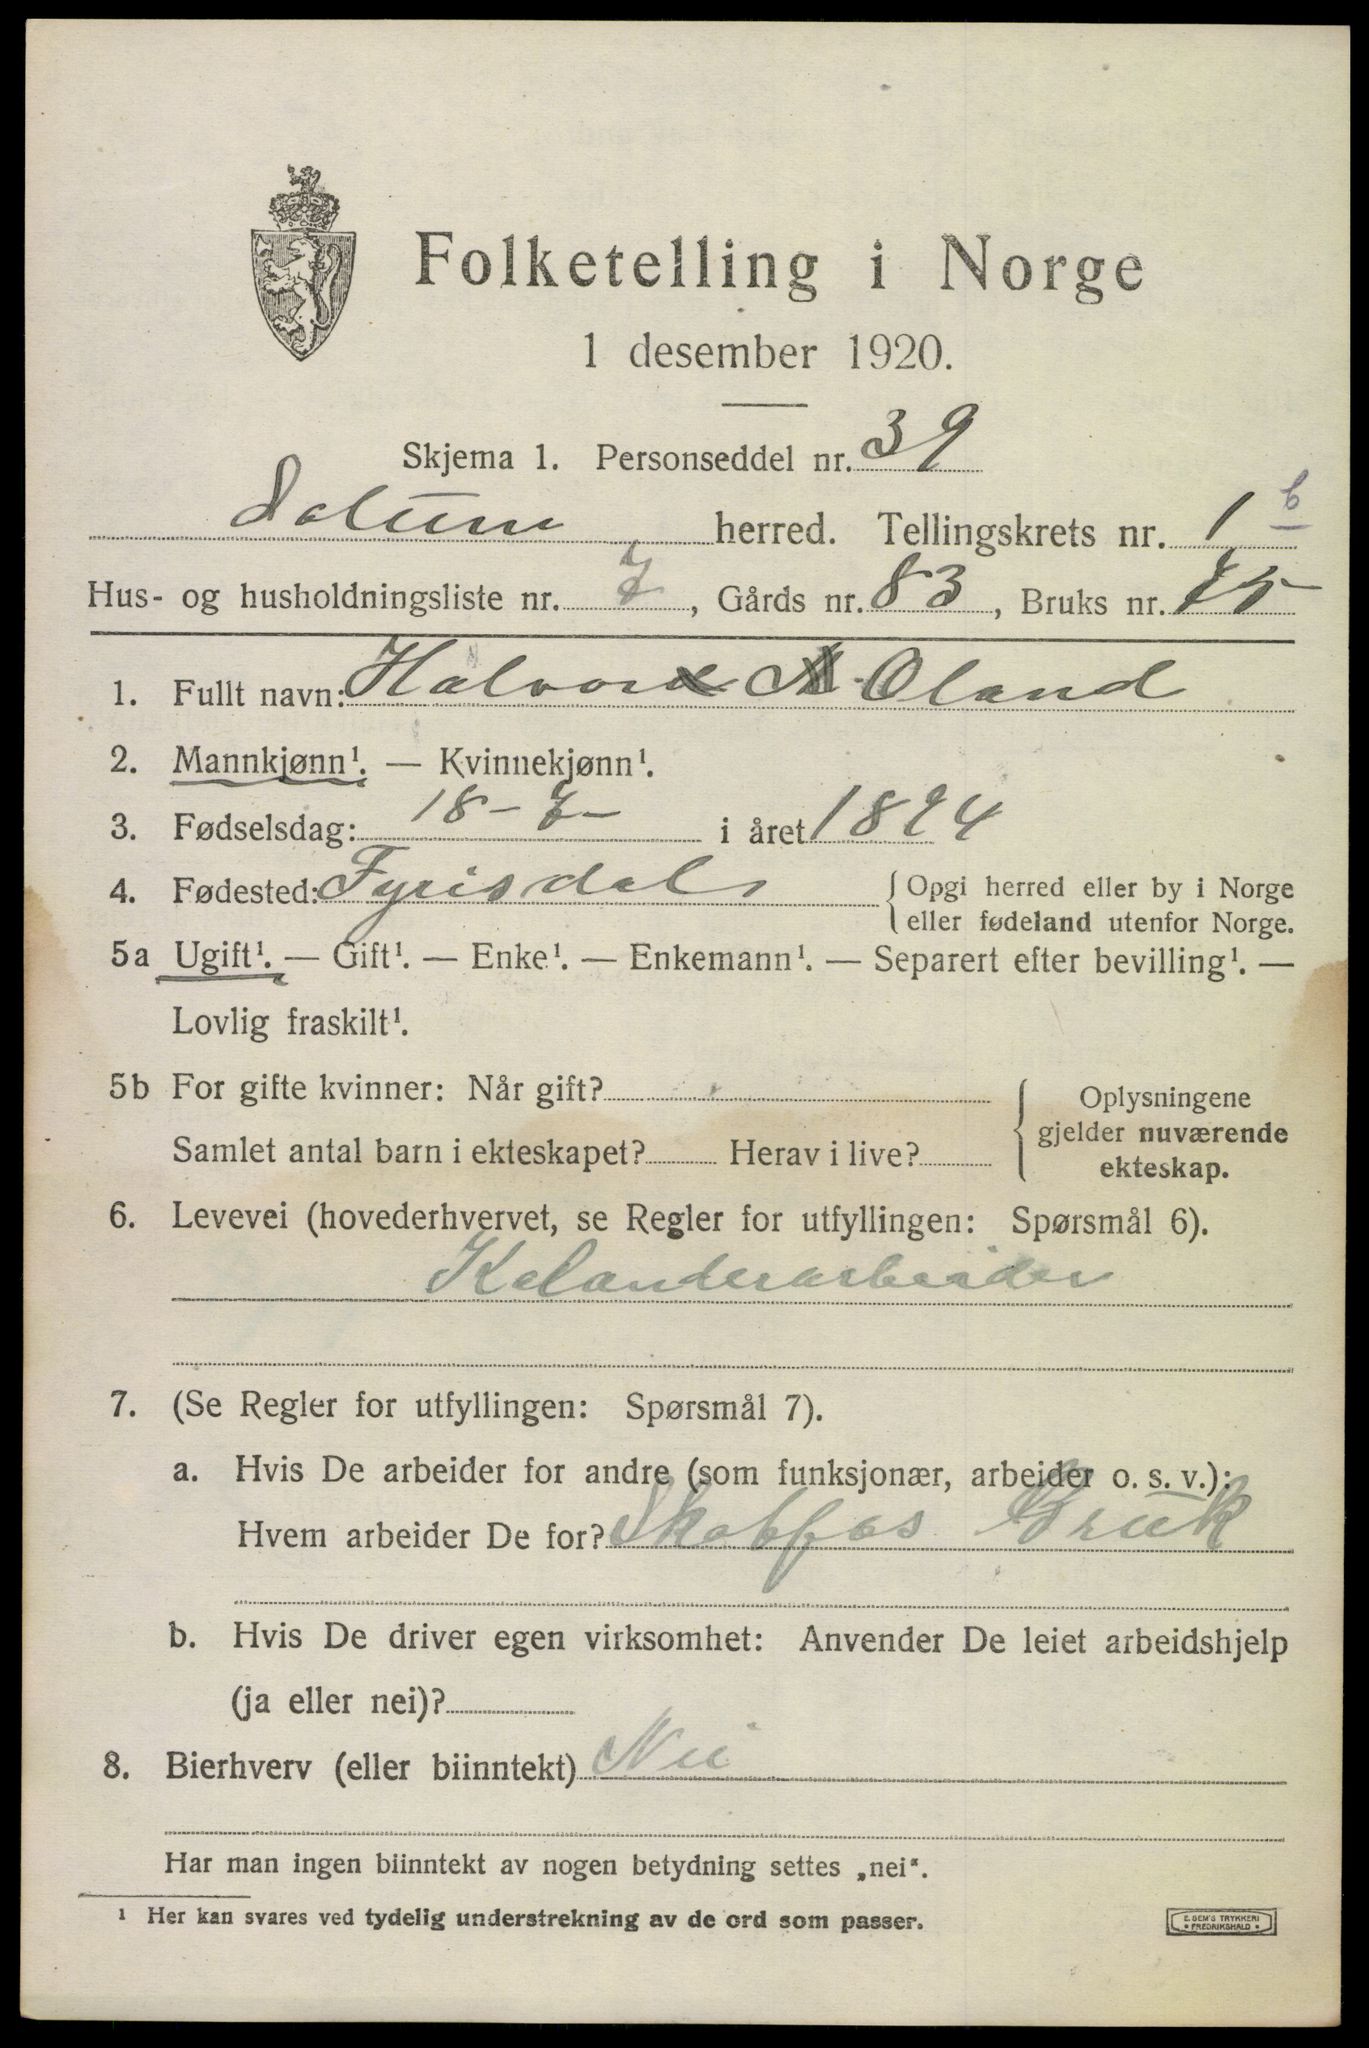 Folketelling i Norge
1 desember 1920.
Skjema 1. Personseddel nr. 39
Solum herred. Tellingskrets nr. 1 b
Hus- og husholdningsliste nr. 7, Gårds nr. 83, Bruks nr. 75
1. Fullt navn: Halvor Oland
2. Mannkjønn¹. — Kvinnekjønn¹.
3. Fødselsdag: 18-7- i året 1894
4. Fødested: Fyrisdal {Opgi herred eller by i Norge
eller fødeland utenfor Norge.
5a Ugift¹. — Gift¹. — Enke¹. — Enkemann¹. — Separert efter bevilling¹. —
Lovlig fraskilt¹.
5b For gifte kvinner: Når gift?
Samlet antal barn i ekteskapet? Herav i live?
Oplysningene
gjelder nuværende
ekteskap.
6. Levevei (hovederhvervet, se Regler for utfyllingen: Spørsmål 6).
Kalanderarbeider
7. (Se Regler for utfyllingen: Spørsmål 7).
a. Hvis De arbeider for andre (som funksjonær, arbeider o. s. v.):
Hvem arbeider De for? Skotfos Bruk
b. Hvis De driver egen virksomhet: Anvender De leiet arbeidshjelp
(ja eller nei)?
8. Bierhverv (eller biinntekt) Nei
Har man ingen biinntekt av nogen betydning settes „nei“.
¹ Her kan svares ved tydelig understrekning av de ord som passer.
E. SEM'S TRYKKERI
FREDRIKSHALD